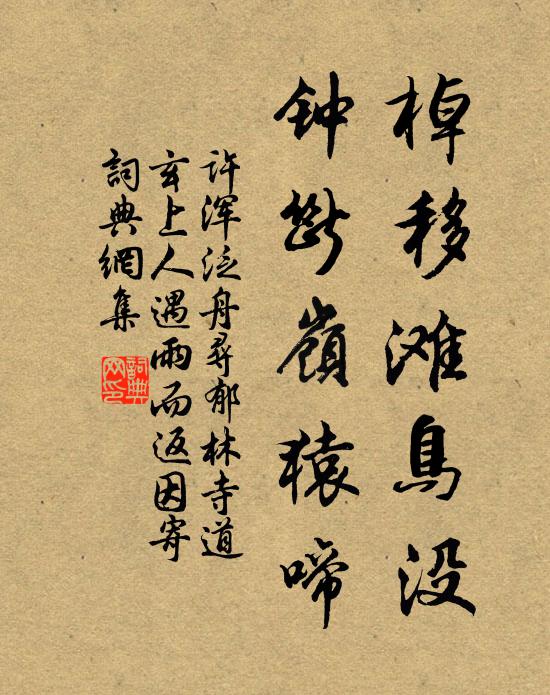 棹移滩鳥没
钟断嶺猿啼
许浑泛舟尋郁林寺道
玄上人遇雨而返因寄
詞典網集
詞典
网印